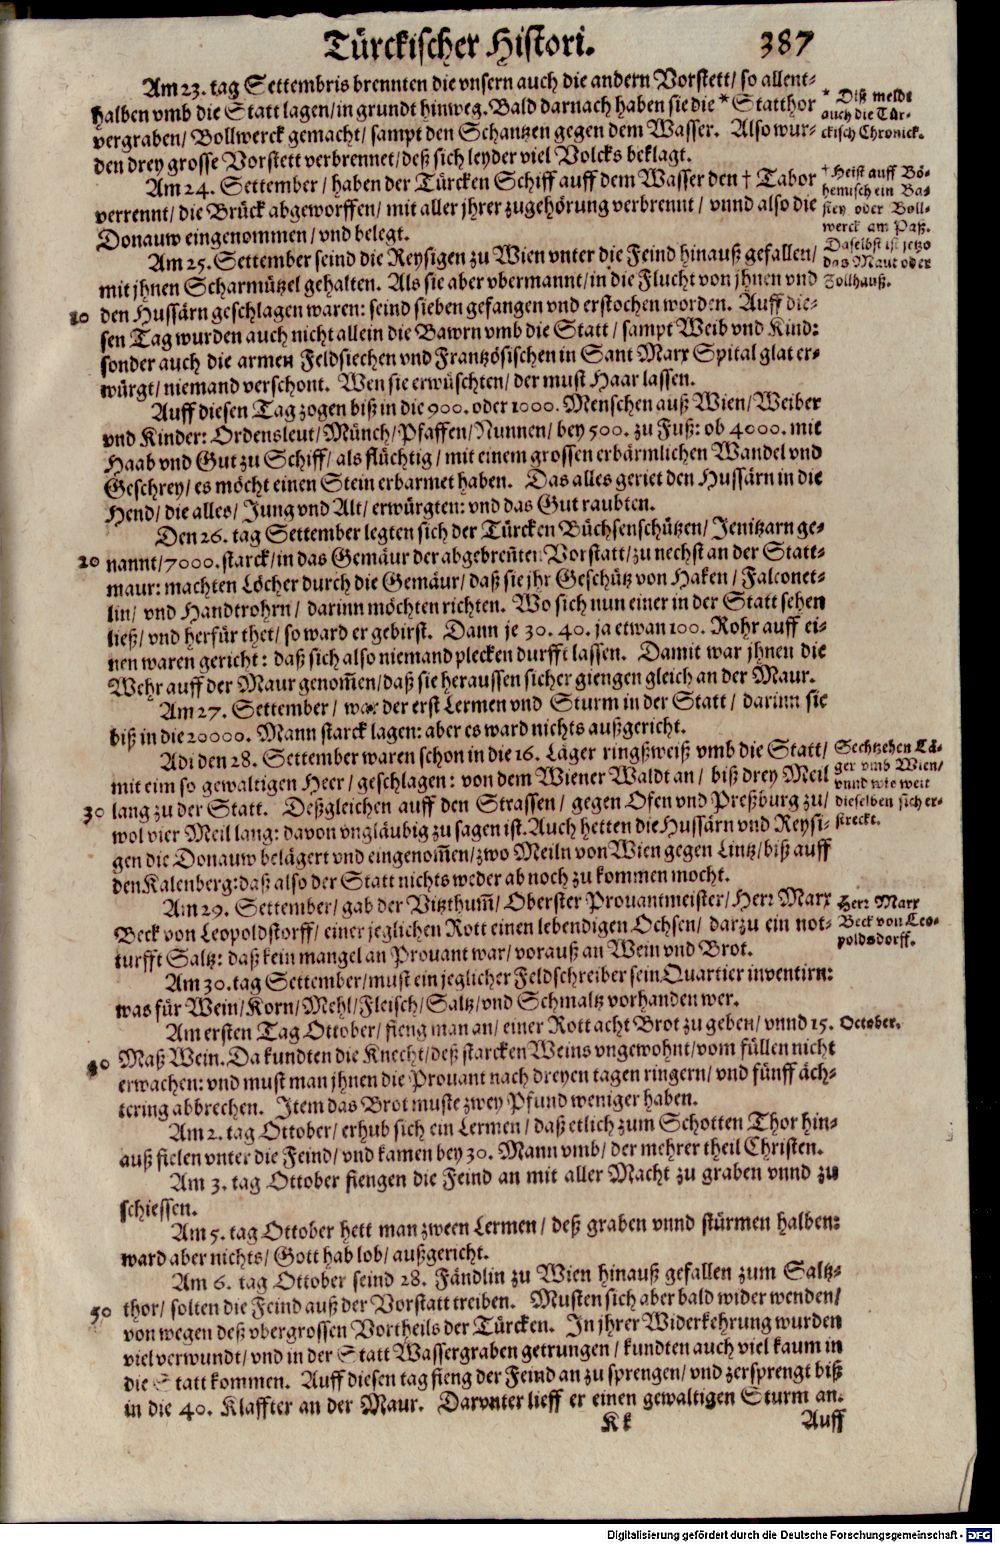 Türckischer Histori. 387
Am 23. tag Settembris brennten die vnsern auch die andern Vorstett/ so allent-
halben vmb die Statt lagen/ in grundt hinweg. Bald darnach haben sie die * Statthor
vergraben/ Bollwerck gemacht/ sampt den Schantzen gegen dem Wasser. Also wur-
den drey grosse Vorstett verbrennet/ deß sich leyder viel Volcks beklagt.
* Diß meldt
auch die Tür-
ckisch Chronick.
Am 24. Settember/ haben der Türcken Schiff auff dem Wasser den † Tabor
verrennt/ die Brück abgeworffen/ mit aller jhrer zugehörung verbrennt/ vnnd also die
Donauw eingenommen/ vnd belegt.
† Heist auff Bö-
hemisch ein Ba-
stey oder Boll-
werck am Paß.
Daselbst ist jetzo
das Maut oder
Zollhauß.
Am 25. Settember seind die Reysigen zu Wien vnter die Feind hinauß gefallen/
mit jhnen Scharmützel gehalten. Als sie aber vbermannt/ in die Flucht von jhnen vnd
10 den Hussärn geschlagen waren: seind sieben gefangen vnd erstochen worden. Auff die-
sen Tag wurden auch nicht allein die Bawrn vmb die Statt/ sampt Weib vnd Kind:
sonder auch die armen Feldsiechen vnd Frantzösischen in Sant Marx Spital glat er-
würgt/ niemand verschont. Wen sie erwüschten/ der must Haar lassen.
Auff diesen Tag zogen biß in die 900. oder 1000. Menschen auß Wien/ Weiber
vnd Kinder: Ordensleut/ Münch/ Pfaffen/ Nunnen/ bey 500. zu Fuß: ob 4000. mit
Haab vnd Gut zu Schiff/ als flüchtig/ mit einem grossen erbärmlichen Wandel vnd
Geschrey/ es möcht einen Stein erbarmet haben. Das alles geriet den Hussärn in die
Hend/ die alles/ Jung vnd Alt/ erwürgten: vnd das Gut raubten.
Den 26. tag Settember legten sich der Türcken Büchsenschützen/ Jenitzarn ge-
20 nannt/ 7000. starck/ in das Gemäur der abgebreñten Vorstatt/ zu nechst an der Statt-
maur: machten Löcher durch die Gemäur/ daß sie jhr Geschütz von Haken/ Falconet-
lin/ vnd Handtrohrn/ darinn möchten richten. Wo sich nun einer in der Statt sehen
ließ/ vnd herfür thet/ so ward er gebirst. Dann je 30. 40. ja etwan 100. Rohr auff ei-
nen waren gericht: daß sich also niemand plecken durfft lassen. Damit war jhnen die
Wehr auff der Maur genom̃en/ daß sie heraussen sicher giengen gleich an der Maur.
Am 27. Settember/ war der erst Lermen vnd Sturm in der Statt/ darinn sie
biß in die 20000. Mann starck lagen: aber es ward nichts außgericht.
Adi den 28. Settember waren schon in die 16. Läger ringßweiß vmb die Statt/
mit eim so gewaltigen Heer/ geschlagen: von dem Wiener Waldt an/ biß drey Meil
30 lang zu der Statt. Deßgleichen auff den Strassen/ gegen Ofen vnd Preßburg zu/
wol vier Meil lang: davon vngläubig zu sagen ist. Auch hetten die Hussärn vnd Reysi-
gen die Donauw belägert vnd eingenom̃en/ zwo Meiln von Wien gegen Lintz/ biß auff
den Kalenberg: daß also der Statt nichts weder ab noch zu kommen mocht.
Sechtzehen Lä-
ger vmb Wien/
vnnd wie weit
dieselben sich er-
streckt.
Am 29. Settember/ gab der Vitzthum̃/ Oberster Provantmeister/ Herr Marx
Beck von Leopoldstorff/ einer jeglichen Rott einen lebendigen Ochsen/ darzu ein not-
turfft Saltz: daß kein mangel an Provant war/ vorauß an Wein vnd Brot.
Herr Marx
Beck von Leo-
poldsdorff.
Am 30. tag Settember/ must ein jeglicher Feldschreiber sein Quartier inventirn:
was für Wein/ Korn/ Mehl/ Fleisch/ Saltz/ vnd Schmaltz vorhanden wer.
Am ersten Tag Ottober/ fieng man an/ einer Rott acht Brot zu geben/ vnnd 15.
October.
40 Maß Wein. Da kundten die Knecht/ deß starcken Weins vngewohnt/ vom füllen nicht
erwachen: vnd must man jhnen die Provant nach dreyen tagen ringern/ vnd fünff äch-
tering abbrechen. Item das Brot muste zwey Pfund weniger haben.
Am 2. tag Ottober/ erhub sich ein Lermen/ daß etlich zum Schotten Thor hin-
auß fielen vnter die Feind/ vnd kamen bey 30. Mann vmb/ der mehrer theil Christen.
Am 3. tag Ottober fiengen die Feind an mit aller Macht zu graben vnnd zu
schiessen.
Am 5. tag Ottober hett man zween Lermen/ deß graben vnnd stürmen halben:
ward aber nichts/ Gott hab lob/ außgericht.
Am 6. tag Ottober seind 28. Fändlin zu Wien hinauß gefallen zum Saltz-
50 thor/ solten die Feind auß der Vorstatt treiben. Musten sich aber bald wider wenden/
von wegen deß vbergrossen Vortheils der Türcken. In jhrer Widerkehrung wurden
viel verwundt/ vnd in der Statt Wassergraben getrungen/ kundten auch viel kaum in
die Statt kommen. Auff diesen tag fieng der Feind an zu sprengen/ vnd zersprengt biß
in die 40. Klaffter an der Maur. Darvnter lieff er einen gewaltigen Sturm an.
Kk Auff
Digitalisierung gefördert durch die Deutsche Forschungsgemeinschaft - DFG